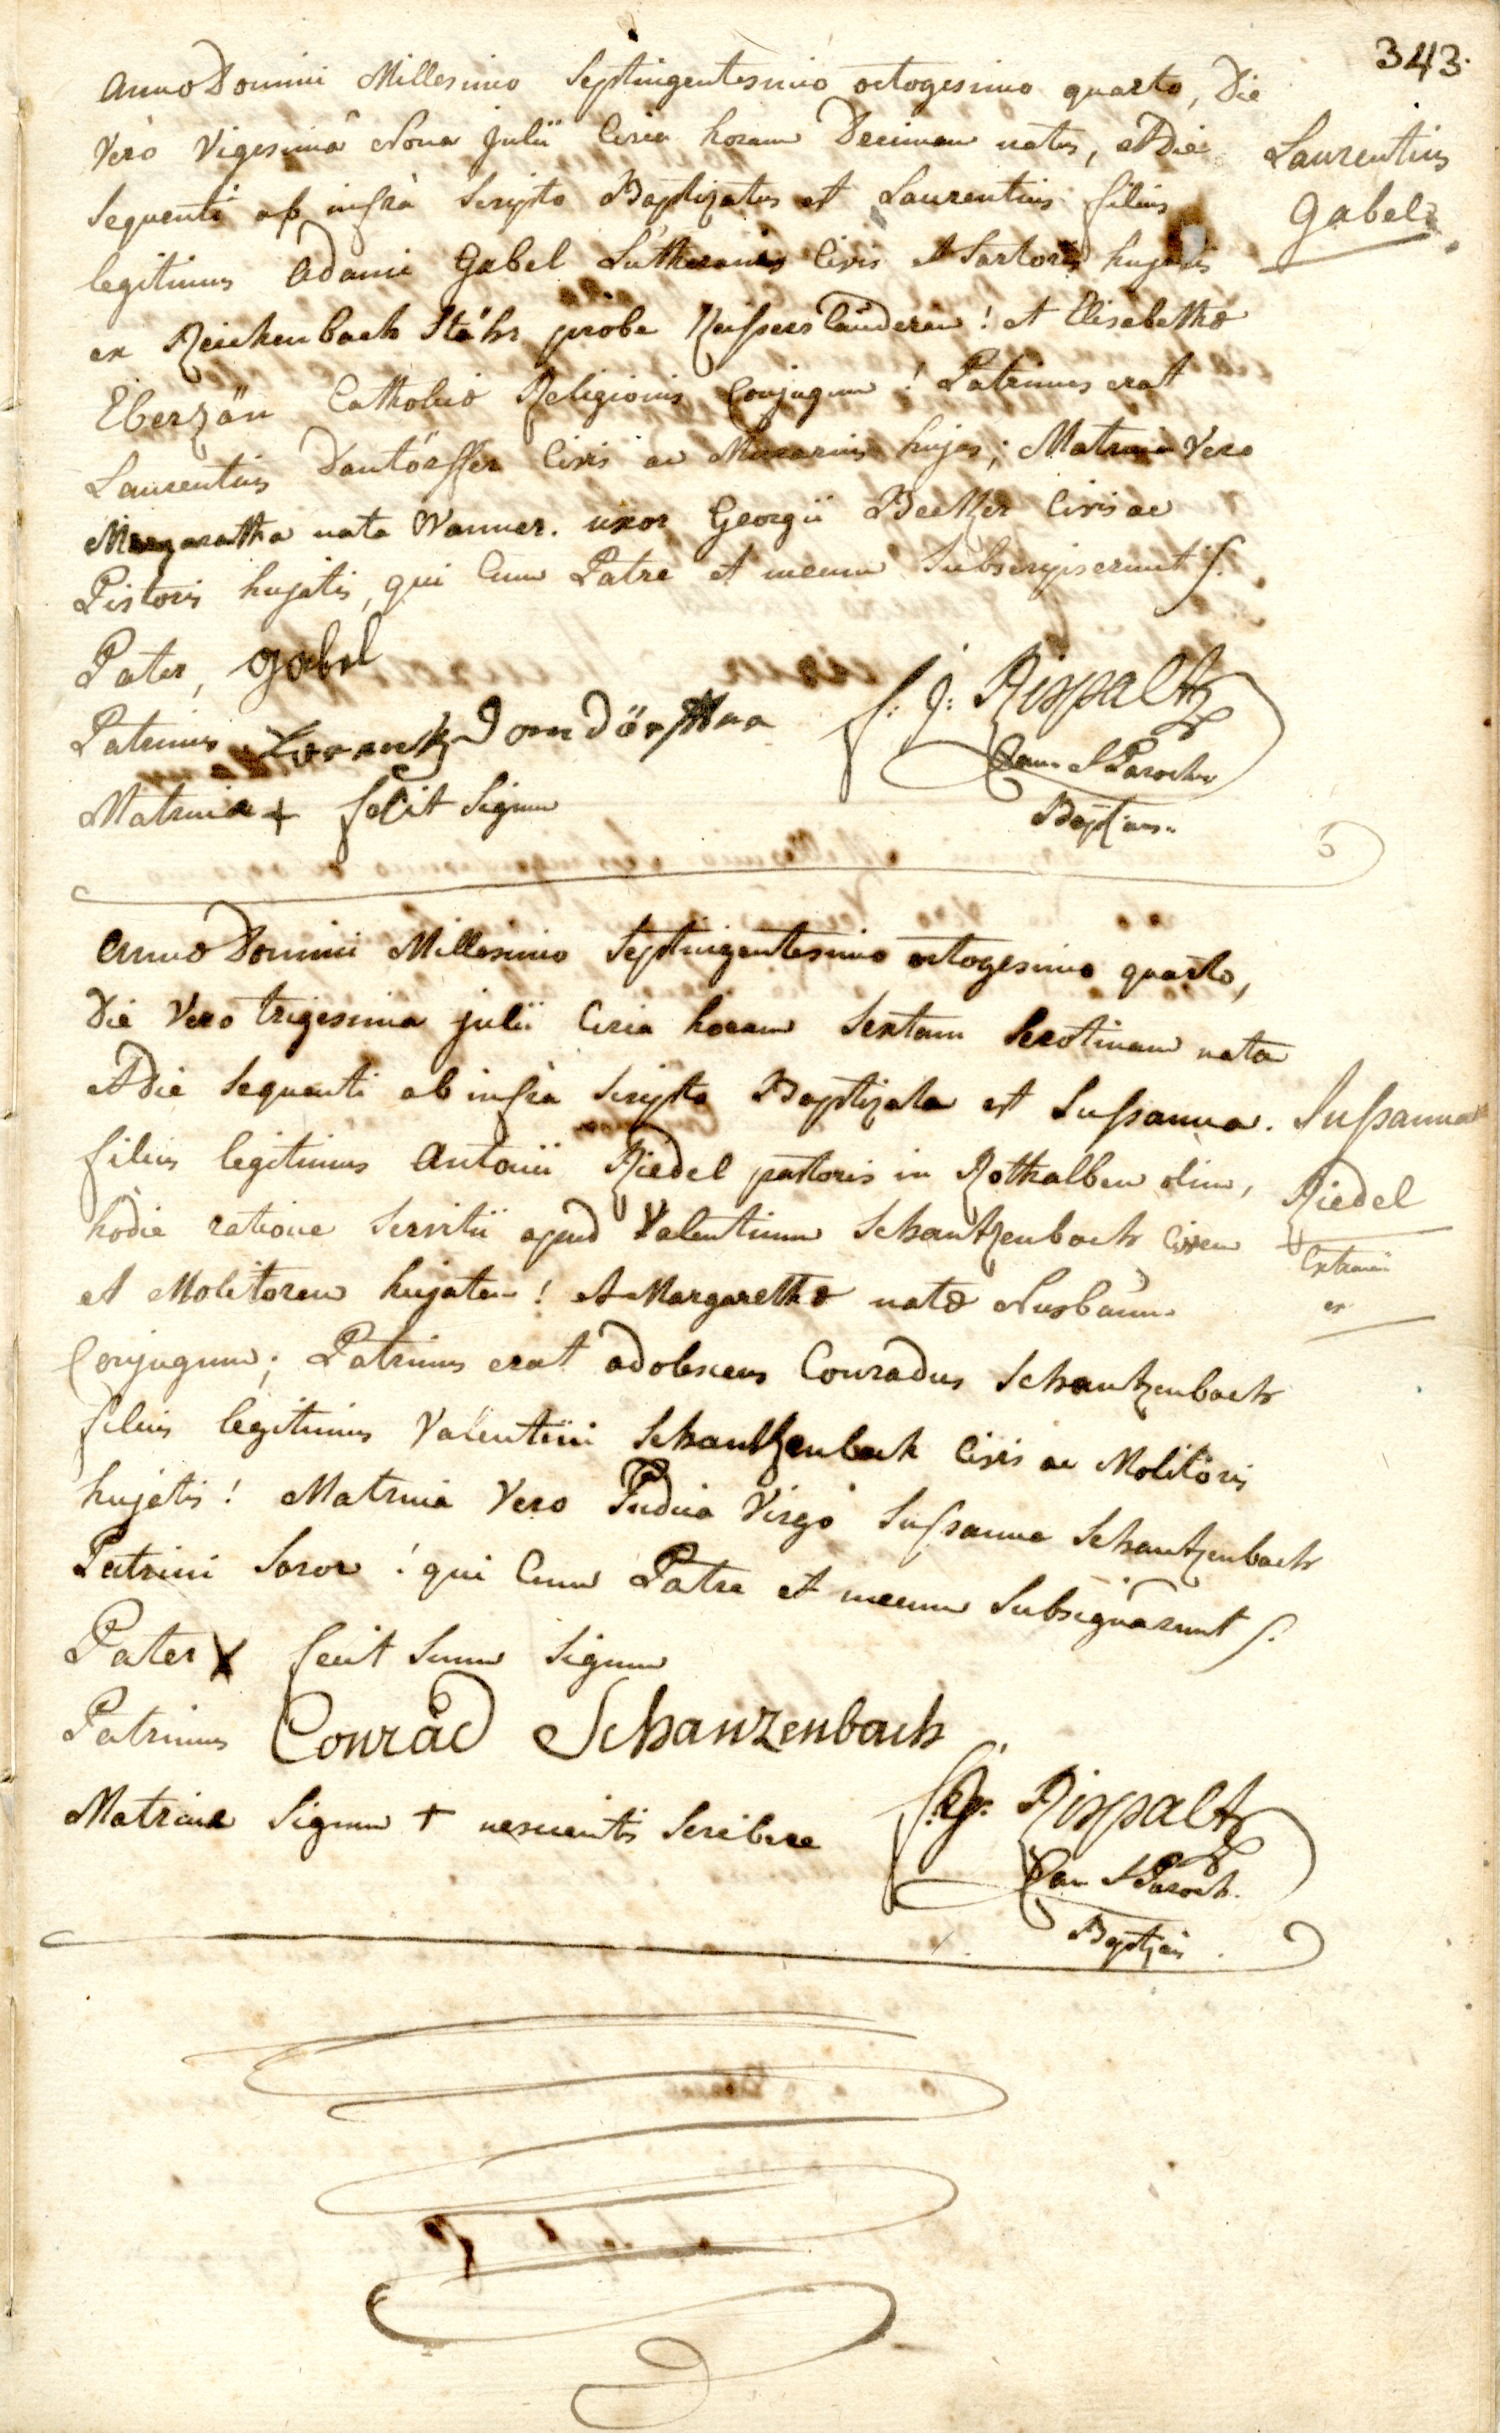 343.
Anno Domini Millesimo Septingentesimo octogesimo quarto, Die
Vero Vigesimâ Nona Julii Circa horam Decimam natus, et Die
Sequenti ab infrà Scripto Baptizatus est Laurentius filius
legitimus Adami Gabel Lutherani Civis et Sartoris hujatis
ex Reichenbach Stahr probe Keissers länderen! et Elisabethæ
Eberzän Catholicæ Religionis Conjugum! Patrinus erat
Laurentius Dantörffer Civis ac Murarius hujas; Matrina Vero
Margaratha nata Wanner. uxor Georgii Becker Civis ac
Pistoris hujatis, qui Cum Patre et mecum Subscripserunt S.
Laurentius
Gabel
Pater, gabel
Patrinus Lorentz Domdörffer
Matrina + fecit Signum
f: J: Rispaltz
Can. et Parochus
Baptizans
Anno Domini Millesimo Septingentesimo octogesimo quarto,
Die Vero trigesima julii Circa horam Sextam Serotinam nata
et Die Sequenti ab infrà Scripto Baptizata est Sussanna.
filius legitimus Antonii Riedel pastoris in Rothalben olim,
hodie ratione Servitii apud Valentinum Schantzenbach Civem
et Molitorem hujatem! et Margarethæ natæ Nusbaum
Conjugum; Patrinus erat adolescens Conradus Schantzenbach
filius legitimus Valentini Schantzenbach Civis ac Molitoris
hujatis! Matrina Vero Pudica Virgo Sussanna Schantzenbach
Patrini Soror! qui Cum Patre et mecum Subsignârunt S.
Sussanna
Riedel
Extranei
Pater X fecit Suum Signum
Patrinus Conrad Schanzenbach
Matrinæ Signum + nescientis Scribere
f. J: Rispaltz
Can et Paroch.
Baptizans